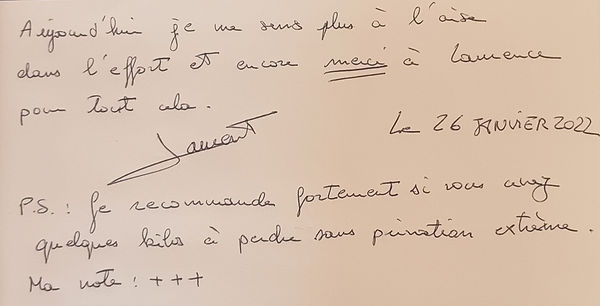 Aujourd'hui je me sens plus à l'aise
dans l'effort et encore merci à Laurence
pour tout cela.
Laurent
Le 26 JANVIER 2022
P.S. : Je recommande fortement si vous avez
quelques kilos à perdre sans privation extrême.
Ma note : +++